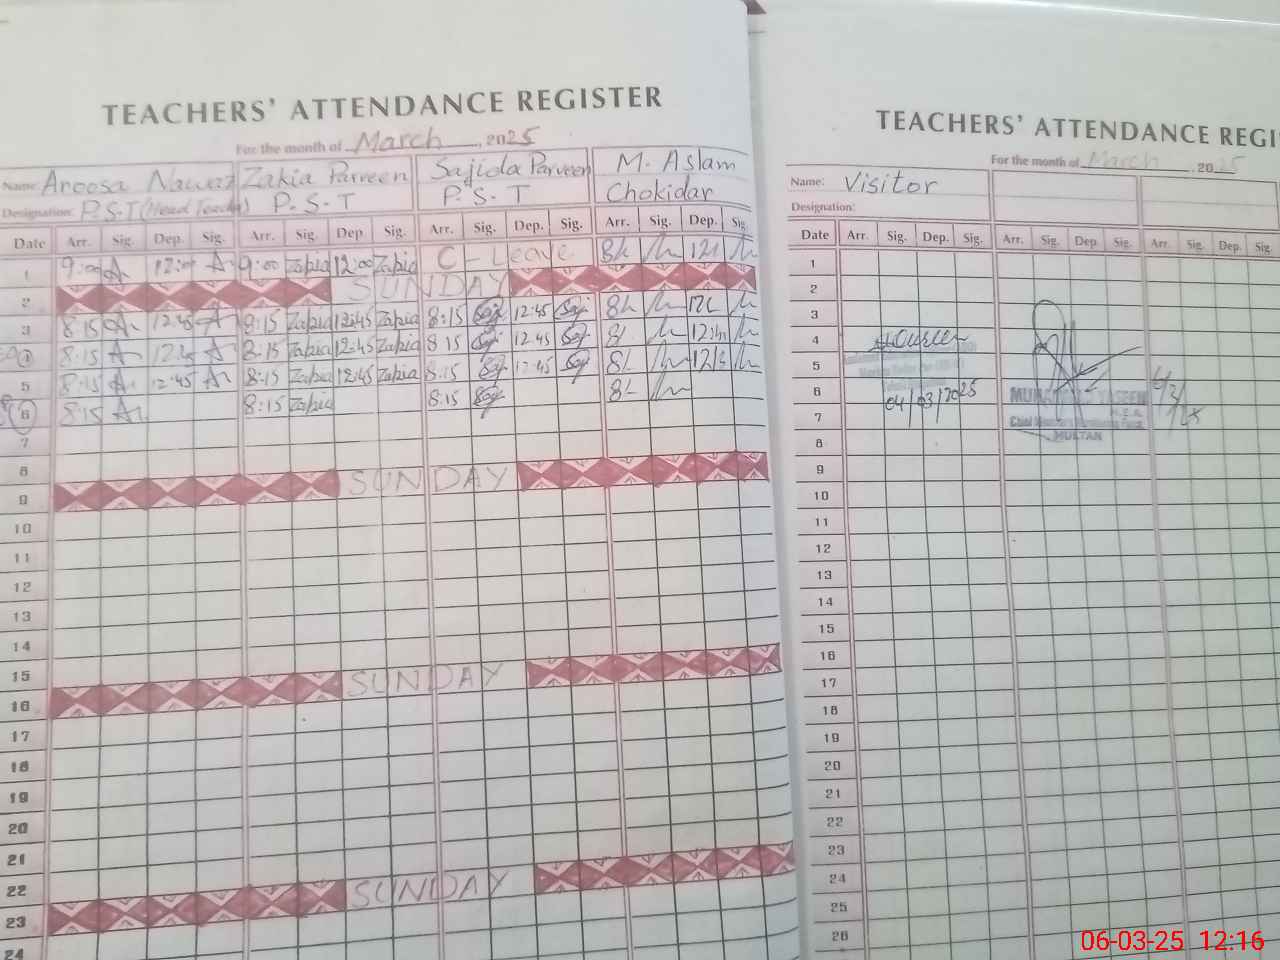 TEACHERS' ATTENDANCE REGISTER
For the month of March, 2025
Name: Aroosa Nawaz Zakia Parveen Sajida Parveen M. Aslam
Designation: P.S.T (Head Teacher) P.S.T P.S.T Chokidar
Date Arr. Sig. Dep. Sig. Arr. Sig. Dep Sig. Arr. Sig. Dep. Sig. Arr. Sig. Dep. Sig.
1 9:00 12:00 9:00 Zakia 12:00 Zakia C- Leave
2 SUNDAY
3 8:15 12:45 8:15 Zakia 12:45 Zakia 8:15 Saj 12:45 Saj
4 8:15 12:45 8:15 Zakia 12:45 Zakia 8:15 Saj 12:45 Saj
5 8:15 12:45 8:15 Zakia 12:45 Zakia 8:15 Saj 12:45 Saj
6 8:15 8:15 Zakia 8:15 Saj
7
8
9 SUNDAY
10
11
12
13
14
15
16 SUNDAY
17
18
19
20
21
22
23 SUNDAY
24
TEACHERS' ATTENDANCE REGI
For the month of March, 2025
Name: Visitor
Designation:
Date Arr. Sig. Dep. Sig. Arr. Sig. Dep. Sig. Arr. Sig. Dep. Sig.
1
2
3
4
5
6 04/03/2025
7
8
MULTAN
9
10
11
12
13
14
15
16
17
18
19
20
21
22
23
24
25
26
06-03-25 12:16